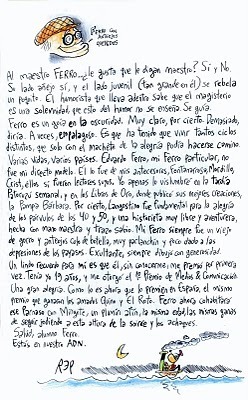 PERRO CON
ANTEOJOS
Al maestro FERRO... ¿le gusta que le digan maestro? Sí y No.
Su lado añejo sí, y el lado juvenil (tan grande en él) se rebela
un poquito. El humorista que lleva adentro sabe que el magisterio
es una solemnidad, que esto del humor no se enseña. Se guía.
Ferro es un guía en la oscuridad. Muy claro, por cierto. Demasiado,
diría. A veces, empalagoso. Es que ha tenido que vivir tantos ciclos
distintos, que sólo con el machete de la alegría podía hacerse camino.
Varias vidas, varios países. Eduardo Ferro, mi Ferro particular, no
fue mi directo modelo. Él lo fue de mis antecesores, Fontanarrosa, Mordillo,
Crist, ellos sí fueron lectores suyos. Yo apenas lo vislumbré en la tardía
Patoruzú semanal, y en los Libros de Oro, donde publicó sus mejores creaciones,
la Pampa Bárbara. Por cierto, Langostino fue fundamental para la alegría
de los párvulos de los 40 y 50, y una historieta muy libre y aventurera,
hecha con mano maestra y trazo sabio. Mi Ferro siempre fue un viejo
de gorro y anteojos culo de botella, muy parlanchín y poco dado a las
depresiones de los payasos. Exultante, siempre dibujó con generosidad.
Un lindo recuerdo para mí es que él, sin conocerme, me premió por primera
vez. Tenía yo 19 años, y me otorgó el 1er Premio de Medios & Comunicación
Una gran alegría. Como lo es ahora que lo premien en España, el mismo
premio que ganaron los amados Quino y El Roto. Ferro ahora cohabitará
ese Parnaso con Mingote, un plumín afín, la misma edad, las mismas ganas
de seguir jodiendo a esta altura de la soirée y los achaques.
Salud, alumno Ferro.
Estás en nuestro ADN.
REP